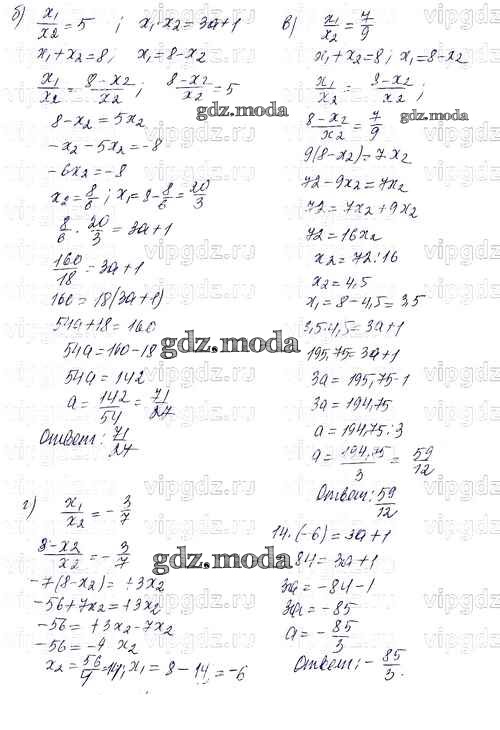 б) x₁/x₂ = 5 ; x₁·x₂ = 3a+1
x₁+x₂=8, x₁=8-x₂
x₁/x₂ = 8-x₂/x₂ ; 8-x₂/x₂ = 5
8-x₂ = 5x₂
-x₂-5x₂=-8
-6x₂=-8
x₂=8/6 ; x₁=8-8/6=20/3
8/6 · 20/3 = 3a+1
160/18 = 3a+1
160=18(3a+1)
54a+18=160
54a=160-18
54a=142
a=142/54=71/27
Ответ: 71/27
в) x₁/x₂ = 7/9
x₁+x₂=8; x₁=8-x₂
x₁/x₂ = 8-x₂/x₂ ;
8-x₂/x₂ = 7/9
9(8-x₂)=7x₂
72-9x₂=7x₂
72=7x₂+9x₂
72=16x₂
x₂=72:16
x₂=4,5
x₁=8-4,5=3,5
3,5·4,5=3a+1
195,75=3a+1
3a=195,75-1
3a=194,75
a=194,75:3
a=194,75/3=59/12
Ответ: 59/12
г) x₁/x₂ = -3/7
8-x₂/x₂ = -3/7
-7(8-x₂)=+3x₂
-56+7x₂=+3x₂
-56=+3x₂-7x₂
-56=-4 x₂
x₂=56/4=14; x₁=8-14=-6
14·(-6)=3a+1
-84=3a+1
3a=-84-1
3a=-85
a=-85/3
Ответ: -85/3.
gdz.moda
gdz.moda
gdz.moda
gdz.moda
vipgdz.ru